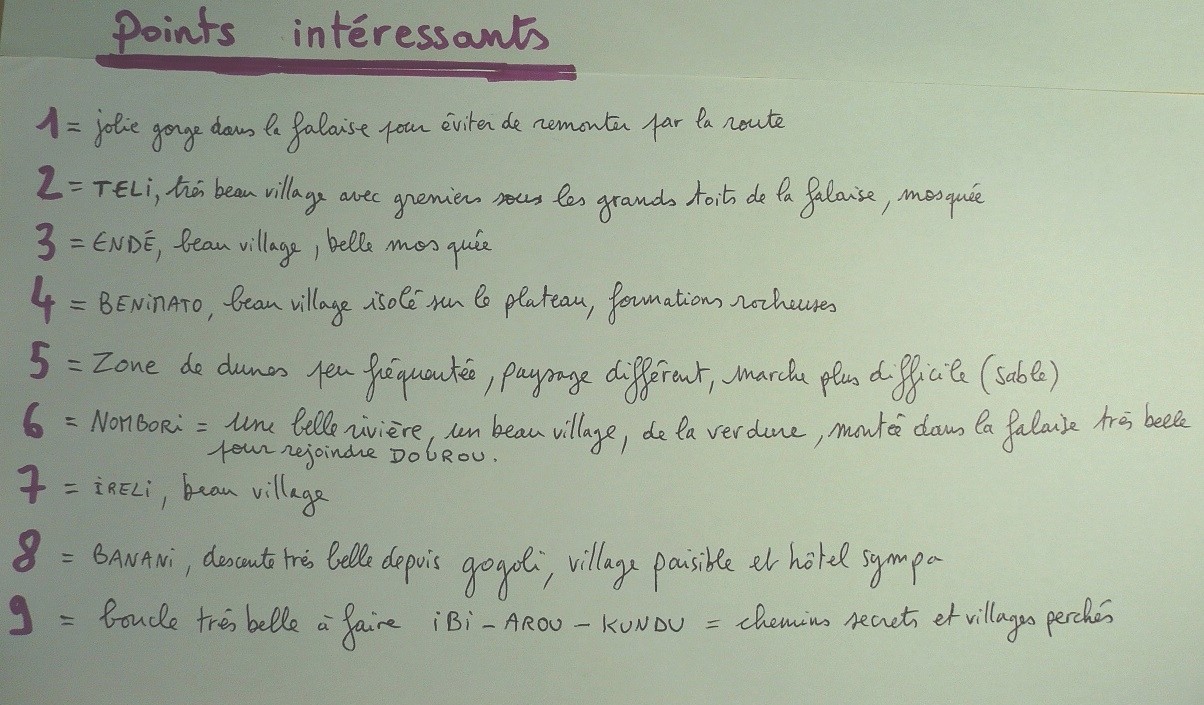 Points intéressants
1 = jolie gorge dans la falaise pour éviter de remonter par la route
2 = TELi, très beau village avec greniers sous les grands toits de la falaise, mosquée
3 = ENDÉ, beau village, belle mosquée
4 = BENiMATO, beau village isolé sur le plateau, formations rocheuses
5 = Zone de dunes peu fréquentée, paysage différent, marche plus difficile (sable)
6 = NOMBORi = une belle rivière, un beau village, de la verdure, montée dans la falaise très belle
pour rejoindre DOUROU.
7 = iRELi, beau village
8 = BANANi, descente très belle depuis gogoli, village paisible et hôtel sympa
9 = boucle très belle à faire iBi - AROU - KUNDU = chemins secrets et villages perchés